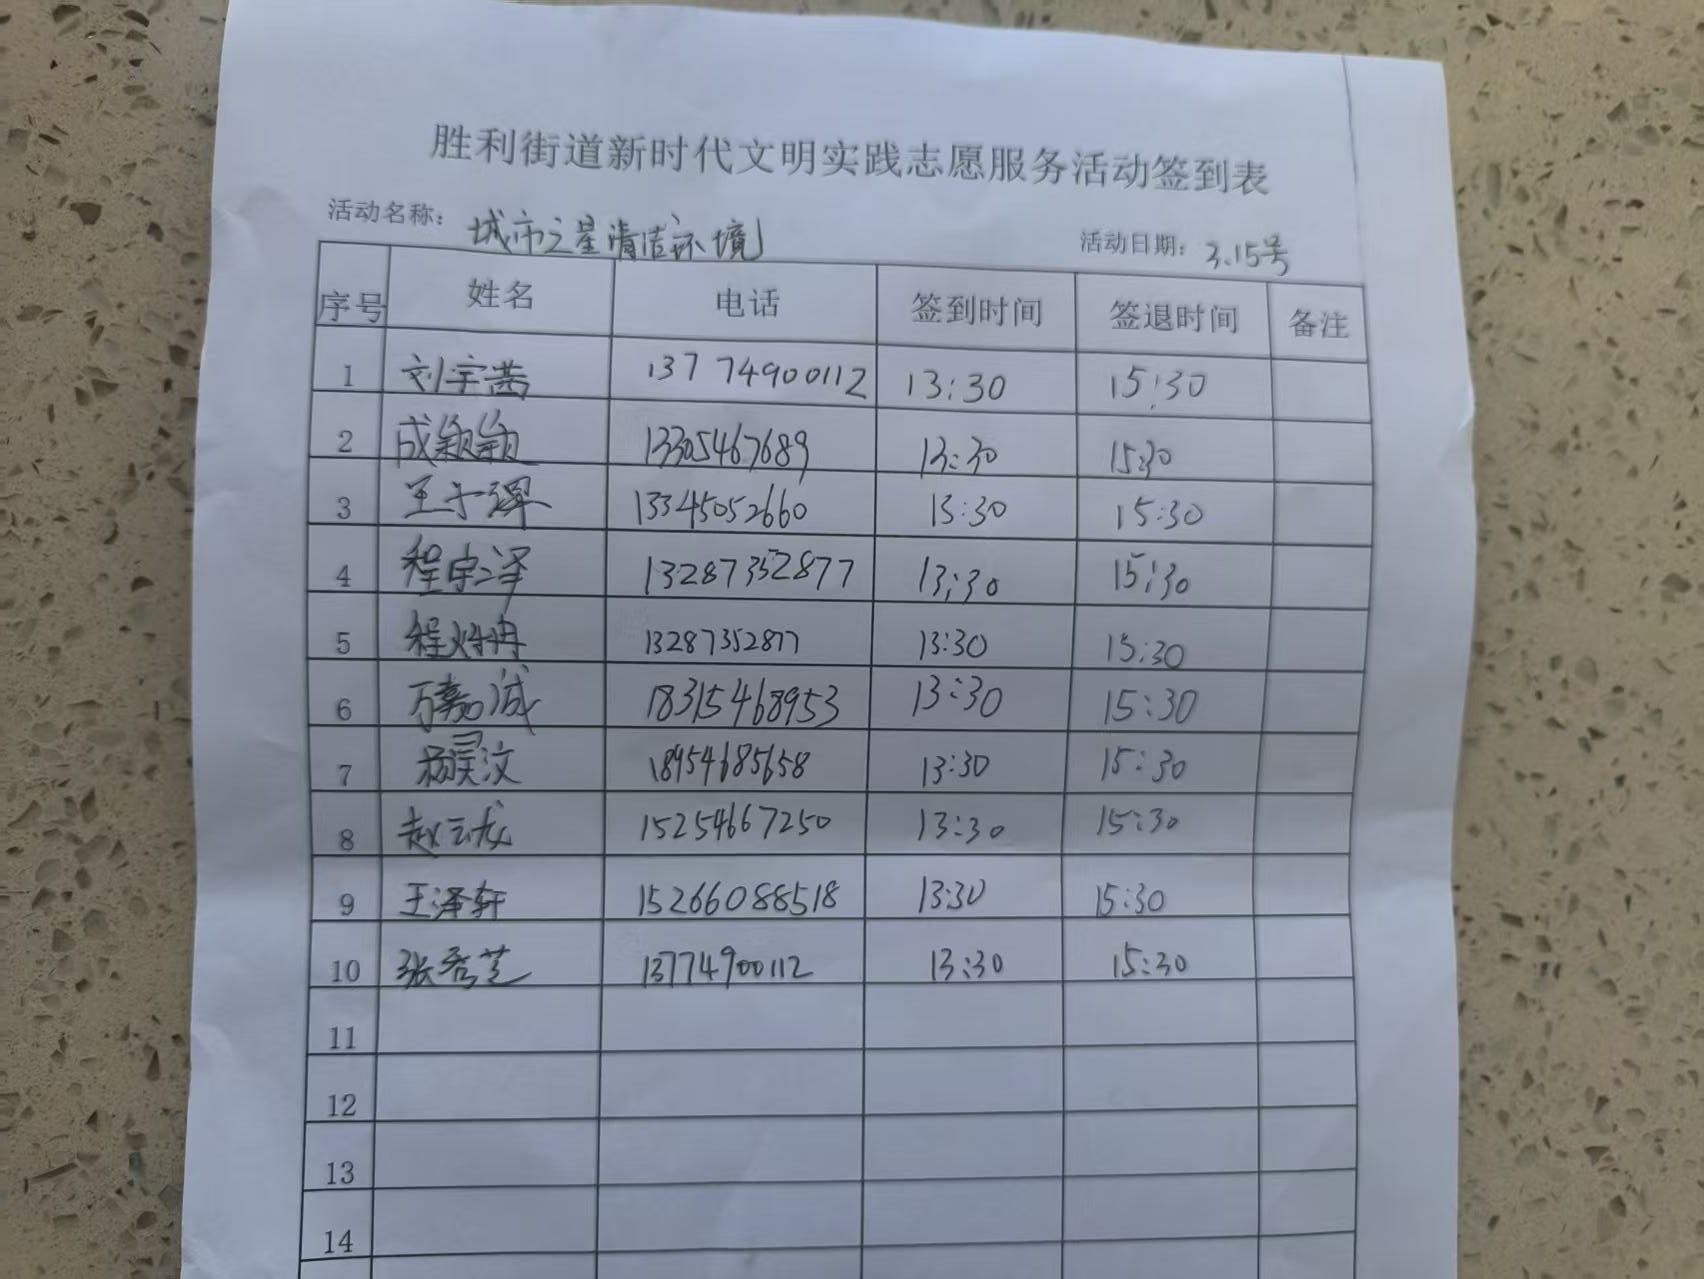 胜利街道新时代文明实践志愿服务活动签到表
活动名称：城市之星清洁环境 活动日期：3.15号
序号 姓名 电话 签到时间 签退时间 备注
1 刘宇茜 13774900112 13:30 15:30
2 成颖颖 13305467689 13:30 15:30
3 王子 13345052660 13:30 15:30
4 程宇泽 13287352877 13:30 15:30
5 程 13287352877 13:30 15:30
6 万嘉诚 18315468953 13:30 15:30
7 杨昊汶 18954685658 13:30 15:30
8 赵云龙 15254667250 13:30 15:30
9 王泽轩 15266088518 13:30 15:30
10 张秀芝 13774900112 13:30 15:30
11
12
13
14